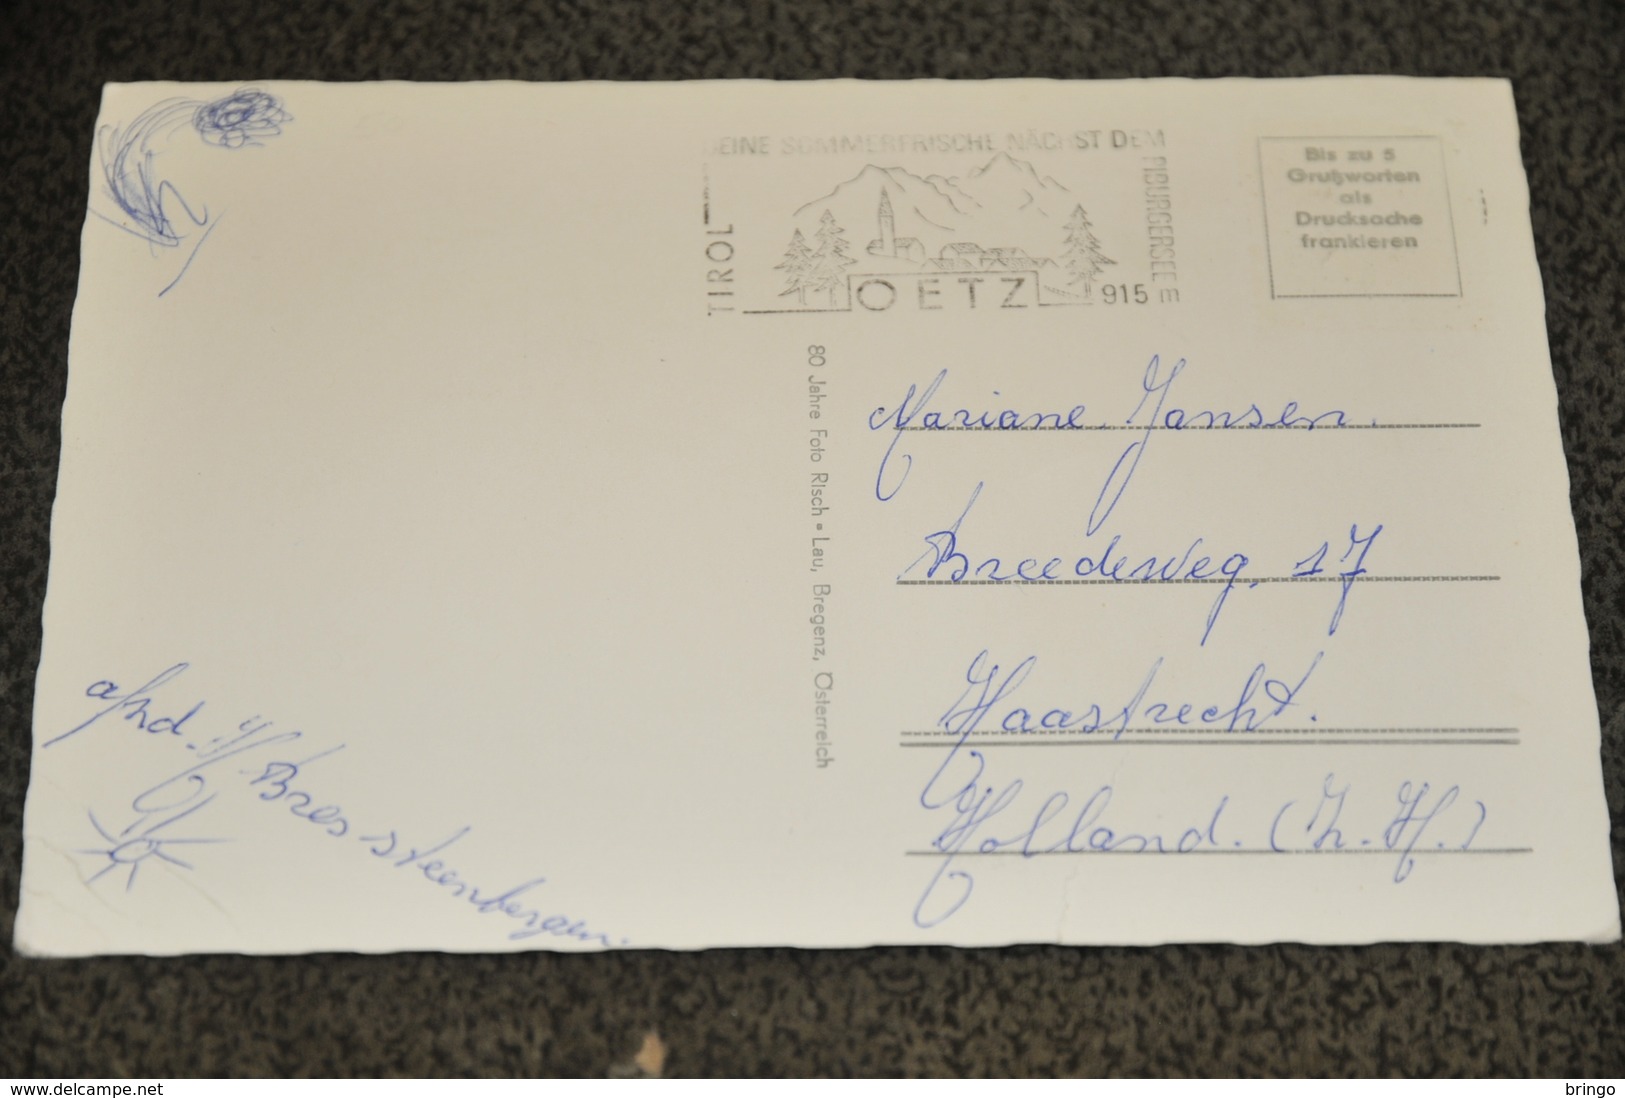 DEINE SOMMERFRISCHE NÄCHST DEM
PIBURGERSEE
TIROL
OETZ
915 m
Bis zu 5
Grußworten
als
Drucksache
frankieren
80 Jahre Foto Risch • Lau, Bregenz, Österreich
Mariane Jansen.
Breedeweg. 17
Haastrecht.
Holland. (Z.H.)
afzd.
Bres steenbergen.
www.delcampe.net
bringo